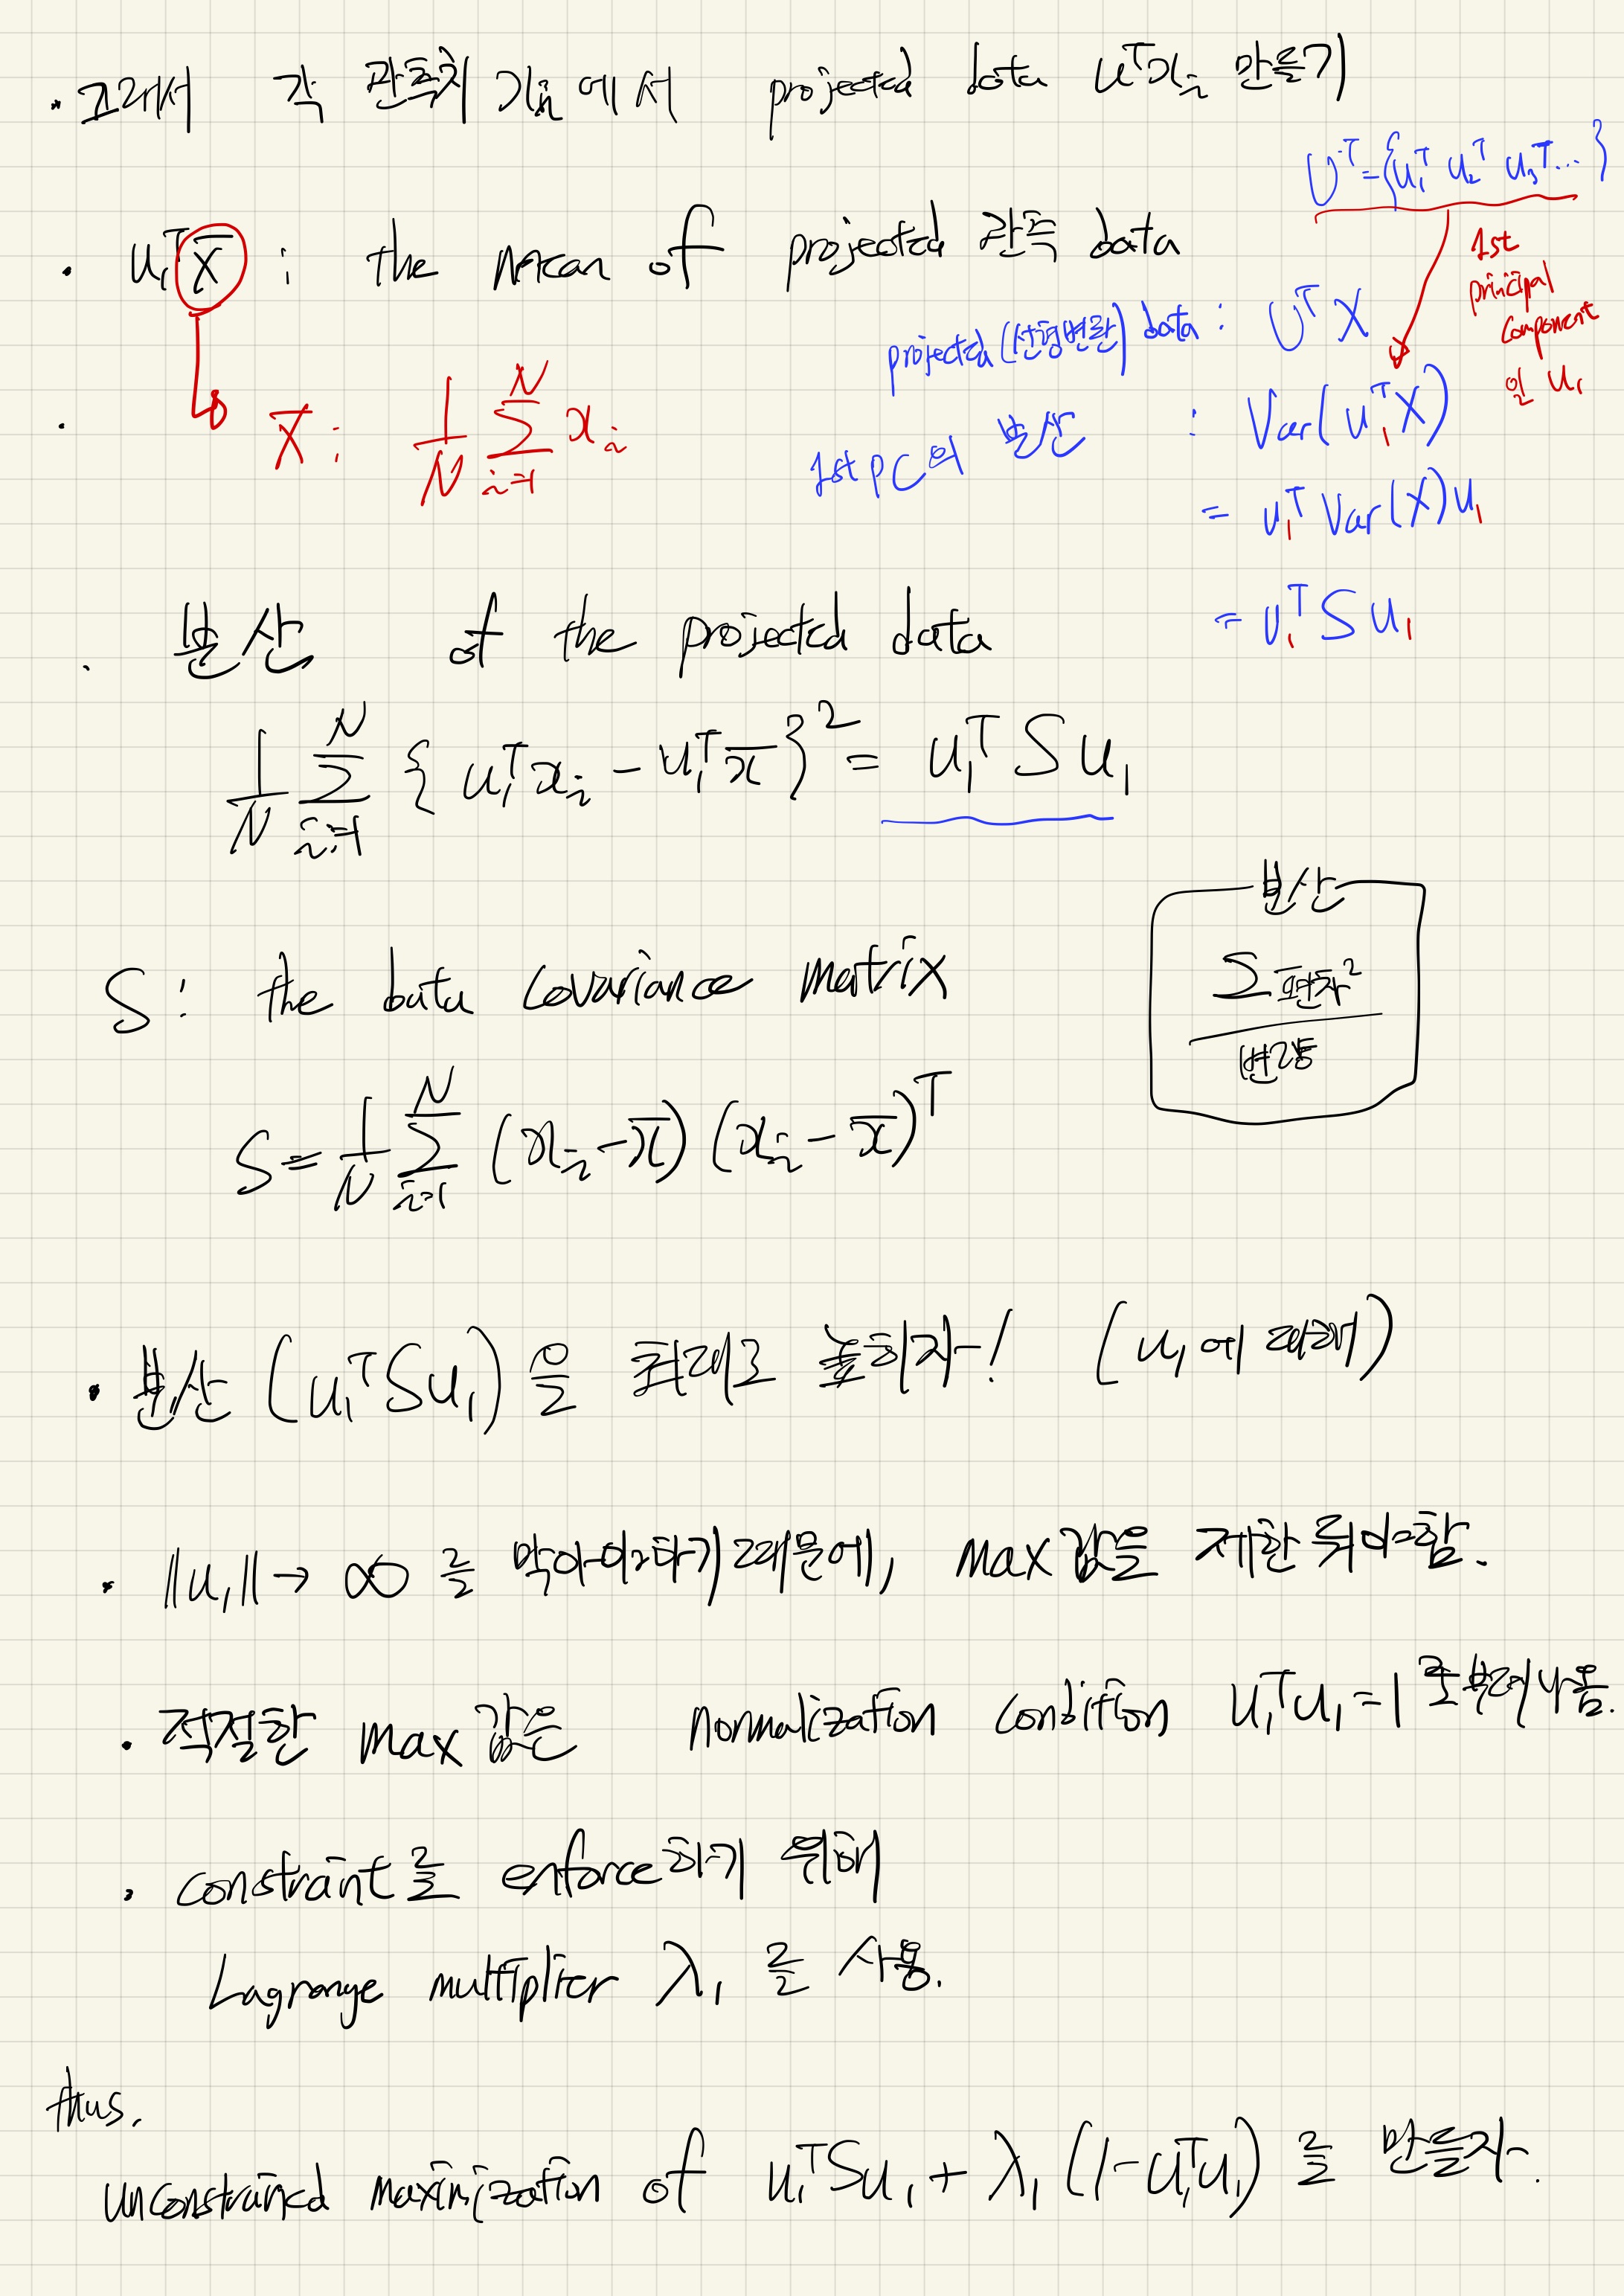 · 그래서 각 관측치 xᵢ 에서 projected data uᵀxᵢ 만들기
Uᵀ = {u₁ᵀ u₂ᵀ u₃ᵀ ...}
1st
principal
component
인 u₁
· u₁ᵀx̄ : the mean of projected 관측 data
projected (선형변환) data : UᵀX
· x̄ : 1/N Σ_{i=1}^{N} xᵢ
1st PC의 분산 : Var(u₁ᵀX)
= u₁ᵀ Var(X) u₁
= u₁ᵀ S u₁
· 분산 of the projected data
1/N Σ_{i=1}^{N} { u₁ᵀxᵢ - u₁ᵀx̄ }² = u₁ᵀ S u₁
분산
Σ 편차²
변량
S : the data covariance matrix
S = 1/N Σ_{i=1}^{N} (xᵢ - x̄) (xᵢ - x̄)ᵀ
· 분산 (u₁ᵀSu₁) 을 최대로 높히자! (u₁에 대해)
· ||u₁|| → ∞ 를 막아야하기 때문에, max 값을 제한 둬야함.
· 적절한 max 값은 normalization condition u₁ᵀu₁ = 1 로부터 나옴.
· constraint를 enforce하기 위해
Lagrange multiplier λ₁ 를 사용.
thus,
unconstrained maximization of u₁ᵀSu₁ + λ₁ (1 - u₁ᵀu₁) 를 만들자.